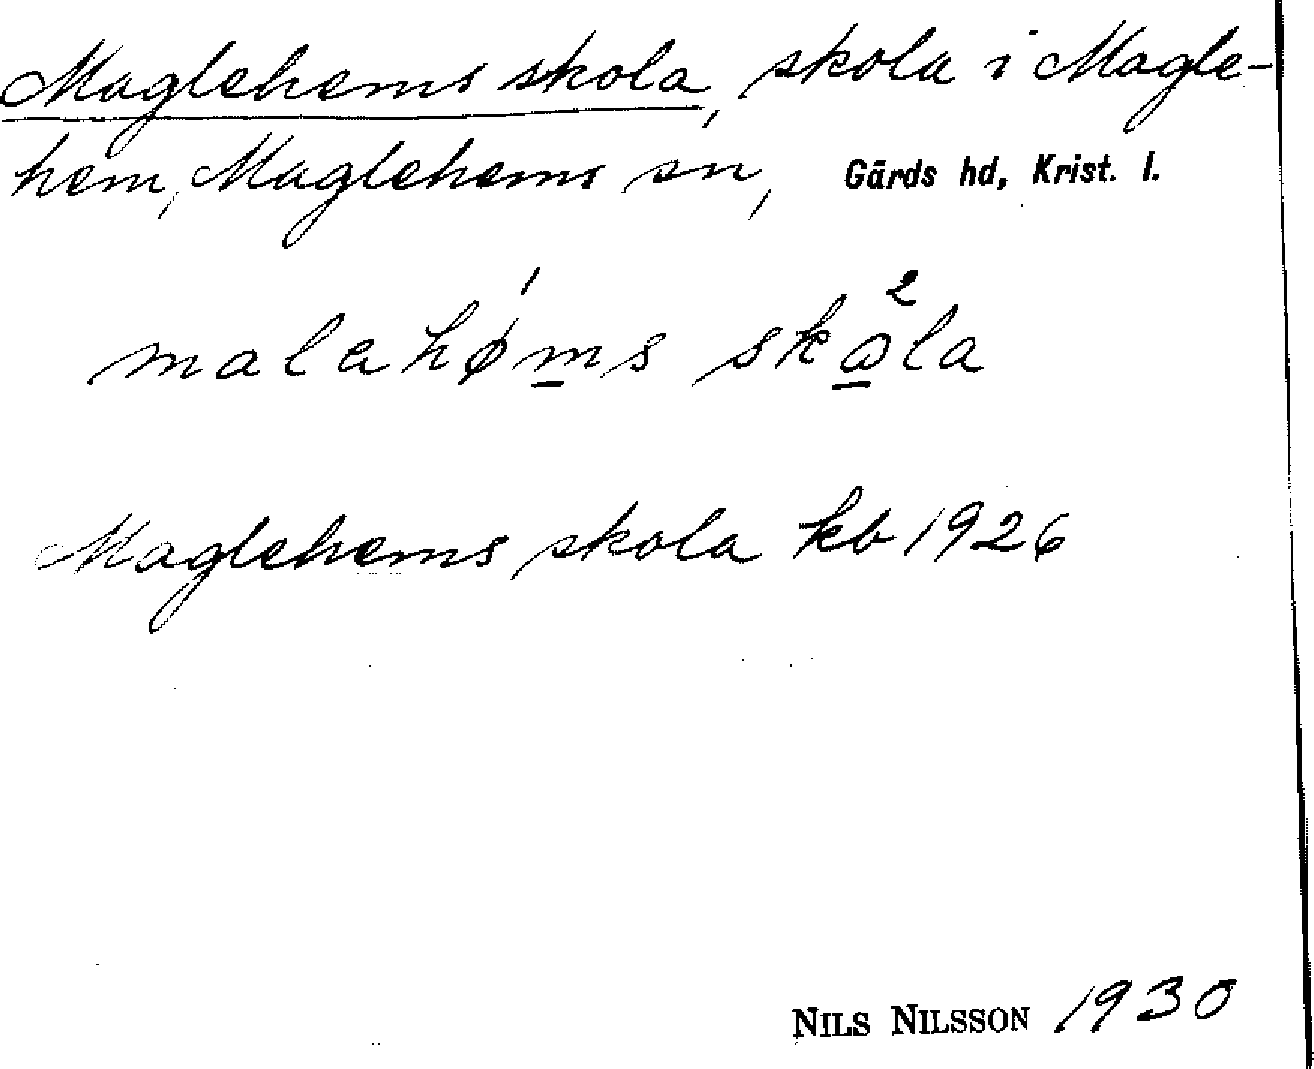 Maglehems skola, skola i Magle-
hem, Maglehems sn, Gärds hd, Krist. l.
malahǿm̲s sko̲²la
Maglehems skola kb 1926
NILS NILSSON 1930